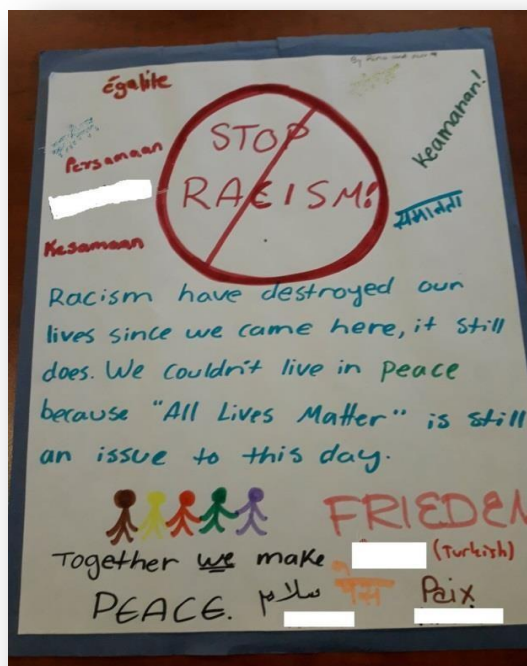 égalité
STOP
RACISM!
Keamanan!
Persamaan
समानता
Kesamaan
Racism have destroyed our
lives since we came here, it still
does. We couldn't live in peace
because "All Lives Matter" is still
an issue to this day.
FRIEDEN
Together we make
(Turkish)
PEACE.
سلام
Paix